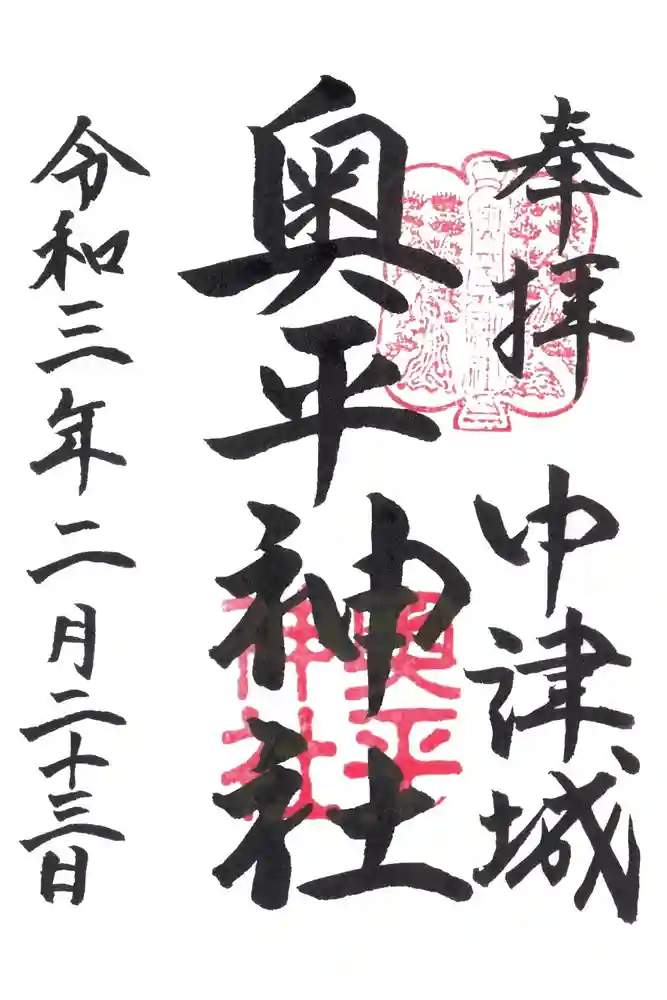 奉拝 中津城
奥平神社
奥平神社
令和三年二月二十三日